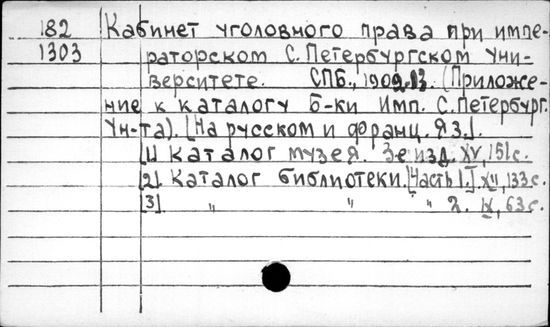 182 Кабинет уголовного права при импе-
1303 раторском С. Петербургском Уни-
верситете. СПБ., 1909-13. (Приложе-
ние к каталогу Б-ки Имп. С. Петербург.
Ун-та). [На русском и франц. яз.].
[1] Каталог музея. 3-е изд. XV, 151 с.
[2]. Каталог библиотеки. [Часть 1.] XII, 133 с.
[3] " " " 2. IX, 63 с.